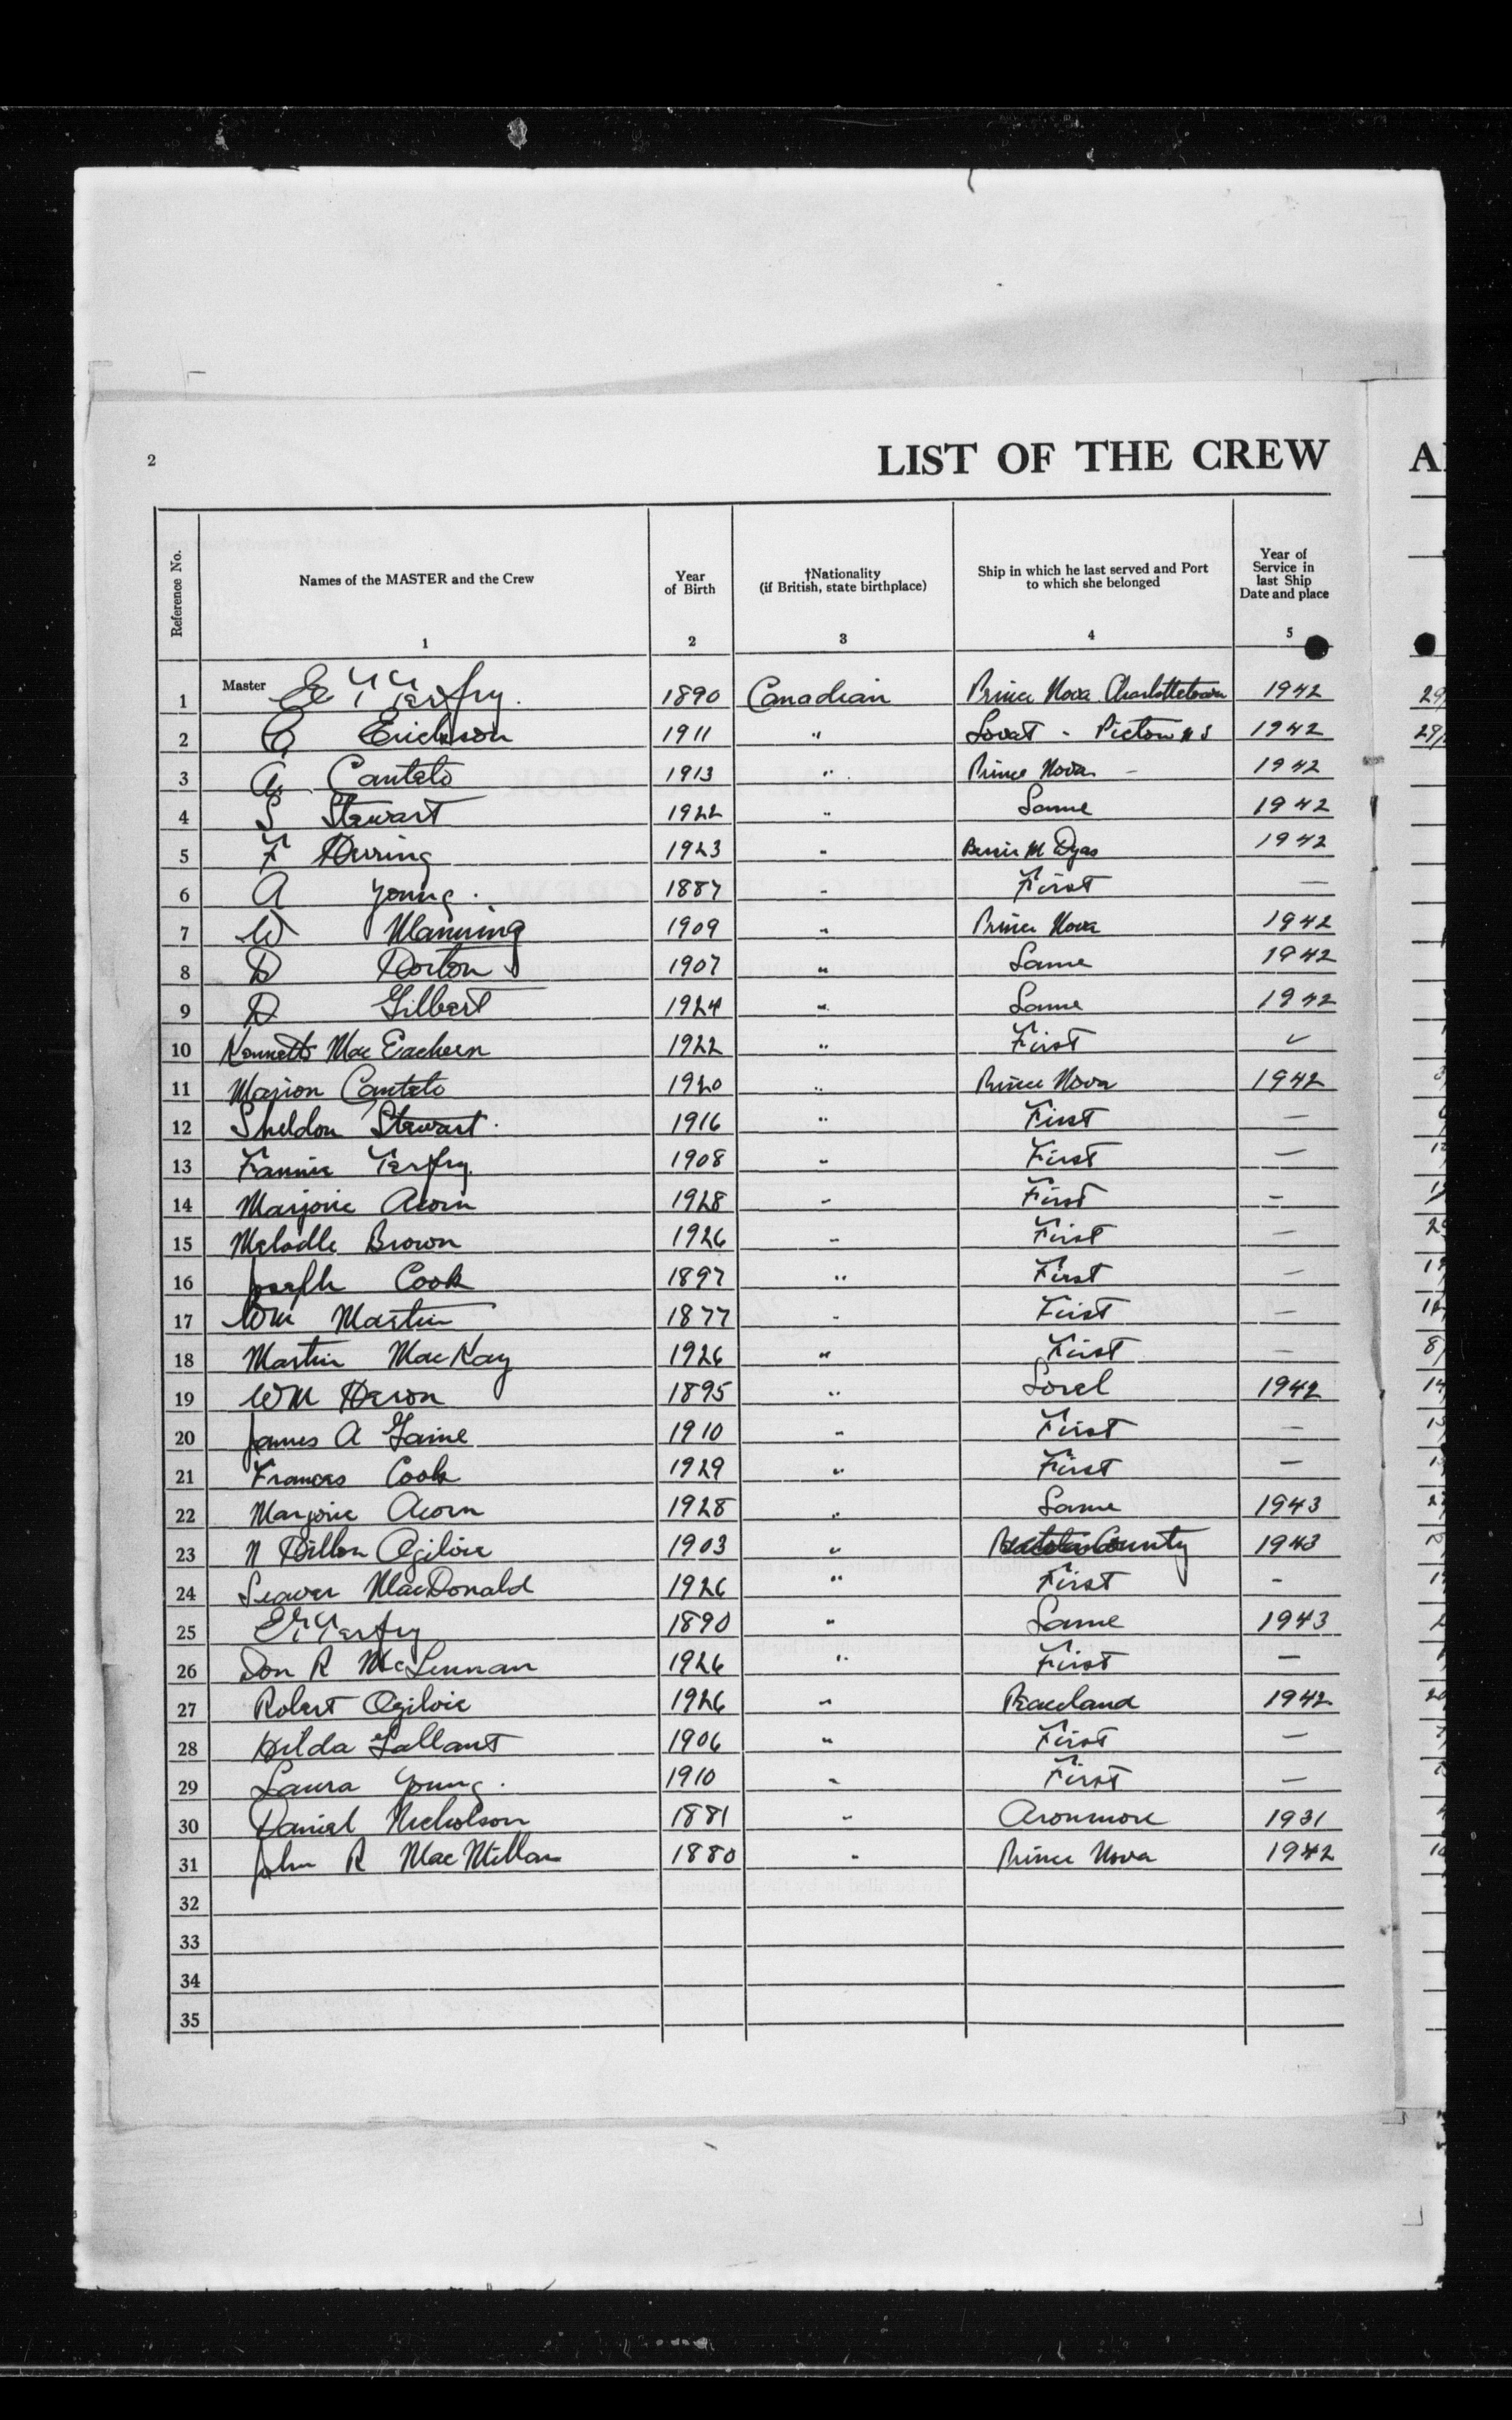 2
LIST OF THE CREW
Reference No.
Names of the MASTER and the Crew
Year of Birth
†Nationality (if British, state birthplace)
Ship in which he last served and Port to which she belonged
Year of Service in last Ship Date and place
1 2 3 4 5
1 Master Terfry. 1890 Canadian Prince Nova Charlottetown 1942
2 Erickson 1911 " Lovat - Pictou NS 1942
3 Cantelo 1913 " Prince Nova - 1942
4 S Stewart 1922 " Same 1942
5 F 1923 " M Dyas 1942
6 A Young. 1887 " First —
7 W Manning 1909 " Prince Nova 1942
8 D Dorton 1907 " Same 1942
9 D Gilbert 1924 " Same 1942
10 Kenneth Mac Eachern 1922 " First
11 Marion Cantelo 1920 " Prince Nova 1942
12 Sheldon Stewart. 1916 " First —
13 Fannie Terfry. 1908 " First —
14 Marjorie Acorn 1928 " First —
15 Brown 1926 " First —
16 Joseph Cook 1897 " First —
17 Wm Martin 1877 " First —
18 Martin MacKay 1926 " First —
19 WM Heron 1895 " Sorel 1942
20 James A 1910 " First —
21 Frances Cook 1929 " First —
22 Marjorie Acorn 1928 " Same 1943
23 N Dillon Ogilvie 1903 " County 1943
24 MacDonald 1926 " First -
25 Terfry 1890 " Same 1943
26 Don R McLennan 1926 " First —
27 Robert Ogilvie 1926 " 1942
28 Hilda Gallant 1906 " First —
29 Laura Young. 1910 " First —
30 Daniel Nicholson 1881 " Aronmore 1931
31 John R MacMillan 1880 " Prince Nova 1942
32
33
34
35